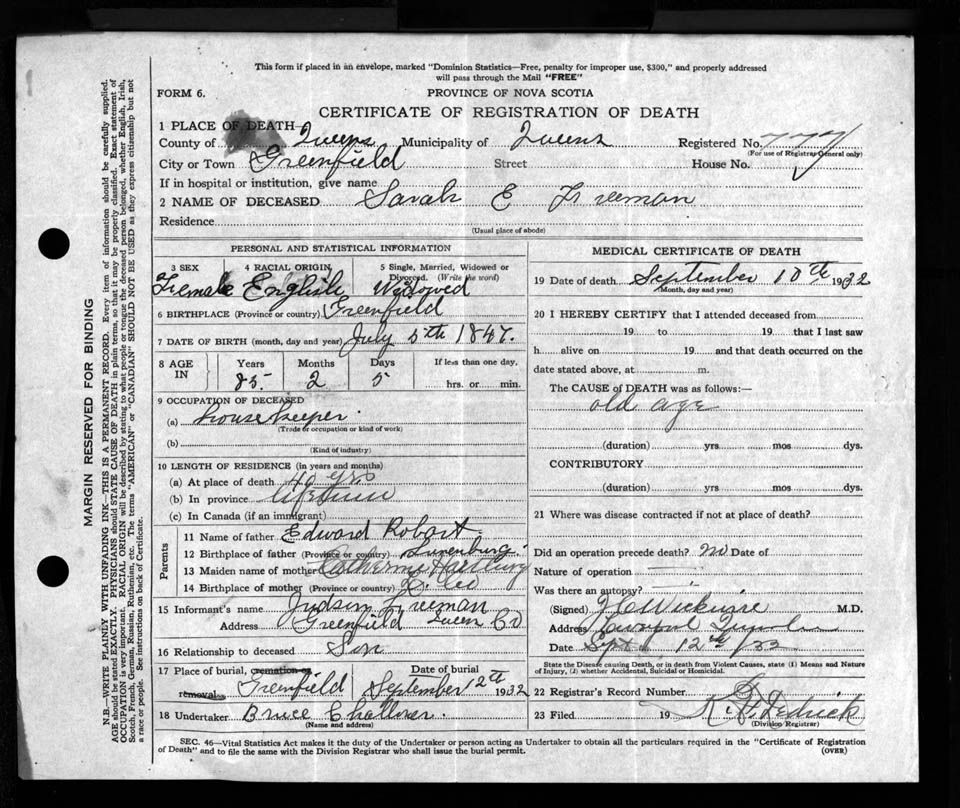 This form if placed in an envelope, marked "Dominion Statistics—Free, penalty for improper use, $300," and properly addressed
will pass through the Mail "FREE"
FORM 6. PROVINCE OF NOVA SCOTIA
CERTIFICATE OF REGISTRATION OF DEATH
1 PLACE OF DEATH
County of Queens Municipality of Queens Registered No. 777
(For use of Registrar General only)
City or Town Greenfield Street House No.
If in hospital or institution, give name
2 NAME OF DECEASED Sarah E Freeman
Residence
(Usual place of abode)
PERSONAL AND STATISTICAL INFORMATION
3 SEX 4 RACIAL ORIGIN 5 Single, Married, Widowed or Divorced. (Write the word)
Female English Widowed
6 BIRTHPLACE (Province or country) Greenfield
7 DATE OF BIRTH (month, day and year) July 5th 1847.
8 AGE IN Years Months Days If less than one day,
85 2 5 hrs. or min.
9 OCCUPATION OF DECEASED
(a) housekeeper
(Trade or occupation or kind of work)
(b)
(Kind of industry)
10 LENGTH OF RESIDENCE (in years and months)
(a) At place of death 40 yrs
(b) In province lifetime
(c) In Canada (if an immigrant)
Parents
11 Name of father Edward Robart
12 Birthplace of father (Province or country) Lunenburg.
13 Maiden name of mother Catherine
14 Birthplace of mother (Province or country)
15 Informant's name Judson Freeman
Address Greenfield Queen Co
16 Relationship to deceased Son
17 Place of burial, cremation or removal Greenfield Date of burial September 12th 1932
18 Undertaker Bruce
(Name and address)
MEDICAL CERTIFICATE OF DEATH
19 Date of death September 10th 1932
(Month, day and year)
20 I HEREBY CERTIFY that I attended deceased from
19 to 19 that I last saw
h alive on 19 and that death occurred on the
date stated above, at m.
The CAUSE of DEATH was as follows:—
old age
(duration) yrs mos dys.
CONTRIBUTORY
(duration) yrs mos dys.
21 Where was disease contracted if not at place of death?
Did an operation precede death? no Date of
Nature of operation
Was there an autopsy?
(Signed) M.D.
Address
Date Sept 12th
State the Disease causing Death, or in death from Violent Causes, state (1) Means and Nature
of Injury, (2) whether Accidental, Suicidal or Homicidal.
22 Registrar's Record Number
23 Filed 19
(Division Registrar)
SEC. 46—Vital Statistics Act makes it the duty of the Undertaker or person acting as Undertaker to obtain all the particulars required in the "Certificate of Registration
of Death" and to file the same with the Division Registrar who shall issue the burial permit. (OVER)
MARGIN RESERVED FOR BINDING
N.B.—WRITE PLAINLY WITH UNFADING INK—THIS IS A PERMANENT RECORD. Every item of information should be carefully supplied.
AGE should be stated EXACTLY. PHYSICIANS should STATE CAUSE OF DEATH in plain terms, so that it may be properly classified. Exact statement of
OCCUPATION is very important. RACIAL ORIGIN will be described by stating to what people or tongue the deceased person belonged, whether English, Irish,
Scotch, French, German, Russian, Ruthenian, etc. The terms "AMERICAN" or "CANADIAN" SHOULD NOT BE USED as they express citizenship but not
a race or people. See instructions on back of Certificate.